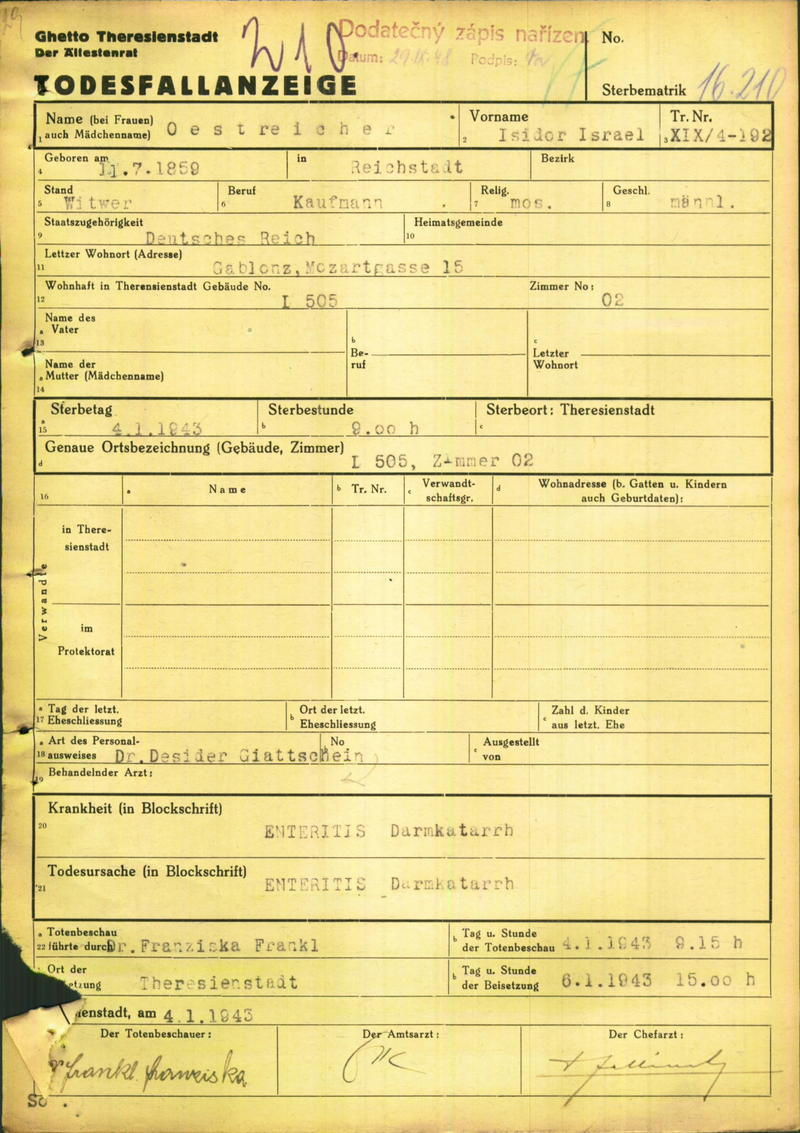 Ghetto Theresienstadt
Der Ältestenrat
TODESFALLANZEIGE
Dodatečný zápis nařízen
Datum: Podpis:
No.
Sterbematrik 16.210
Name (bei Frauen)
1 auch Mädchenname) Oestreicher
Vorname
2 Isidor Israel
Tr. Nr.
3 XIX/4-192
Geboren am
4 11.7.1859
in Reichstadt
Bezirk
Stand
5 Witwer
Beruf
6 Kaufmann
Relig.
7 mos.
Geschl.
8 männl.
Staatszugehörigkeit
9 Deutsches Reich
Heimatsgemeinde
10
Lettzer Wohnort (Adresse)
11 Gablonz,Mozartgasse 15
Wohnhaft in Therensienstadt Gebäude No.
12 L 505
Zimmer No:
02
Name des
a Vater
13
Name der
a Mutter (Mädchenname)
14
b
Be-
ruf
c
Letzter
Wohnort
Sterbetag
a
15 4.1.1943
Sterbestunde
b 9.00 h
Sterbeort: Theresienstadt
c
Genaue Ortsbezeichnung (Gebäude, Zimmer)
d L 505, Zimmer 02
16 a Name b Tr. Nr. c Verwandt-
schaftsgr.
d Wohnadresse (b. Gatten u. Kindern
auch Geburtdaten):
Verwandte
in There-
sienstadt
im
Protektorat
a Tag der letzt.
17 Eheschliessung
b Ort der letzt.
Eheschliessung
c Zahl d. Kinder
aus letzt. Ehe
a Art des Personal-
18 ausweises
b No
c Ausgestellt
von
Dr.Desider Glattschein
19 Behandelnder Arzt:
Krankheit (in Blockschrift)
20 ENTERITIS Darmkatarrh
Todesursache (in Blockschrift)
21 ENTERITIS Darmkatarrh
a Totenbeschau
22 führte durch Dr.Franziska Frankl
b Tag u. Stunde
der Totenbeschau 4.1.1943 9.15 h
Ort der
etzung Theresienstadt
b Tag u. Stunde
der Beisetzung 6.1.1943 15.00 h
ienstadt, am 4.1.1943
Der Totenbeschauer:
Der Amtsarzt:
Der Chefarzt:
So .